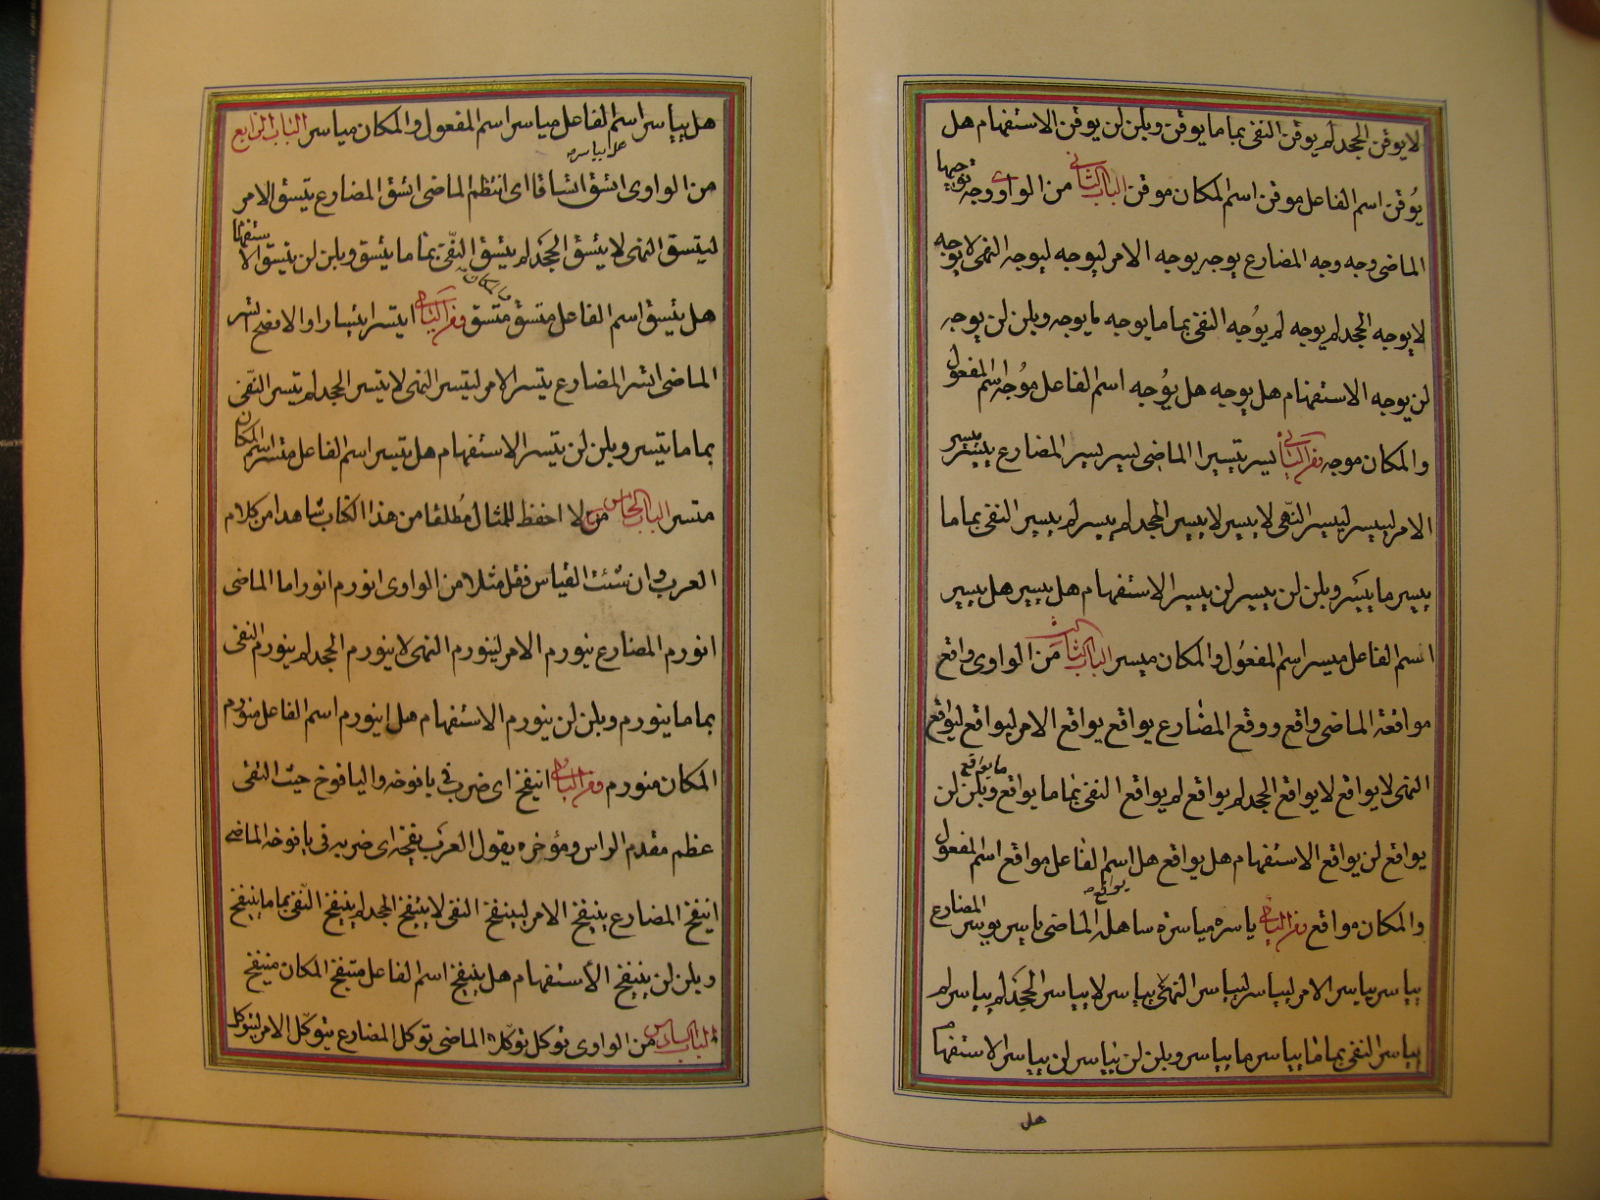 لا يوقن الجحد لم يوقن النفى بما ما يوقن وبلن لن يوقن الاستفهام هل
يُوقن اسم الفاعل موقن اسم المكان موقن الباب الثانى من الواوى وجه توجيها
الماضى وجه وجه المضارع يوجه يوجه الامر ليوجه ليوجه النهى لا يوجه
لا يوجه الجحد لم يوجه لم يُوجه النفى بما ما يوجه ما يوجه وبلن لن يوجه
لن يوجه الاستفهام هل يوجه هل يُوجه اسم الفاعل موُجه اسم المفعول
والمكان موجه ومن اليائى يسر تيسيرا الماضى يسر يسر المضارع ييسر ييسر
الامر لييسر لييسر النهى لا ييسر لا ييسر الجحد لم ييسر لم ييسر النفى بما ما
ييسر ما ييسر وبلن لن ييسر لن ييسر الاستفهام هل ييسر هل ييسر
اسم الفاعل ميسر اسم المفعُول والمكان ميسر الباب الثالث من الواوى واقع
مواقعة الماضى واقع ووقع المضارع يواقع يواقع الامر ليواقع ليواقع
النهى لا يواقع لا يواقع الجحد لم يواقع لم يواقع النفى بما ما يواقع ما يواقع وبلن لن
يواقع لن يواقع الاستفهام هل يواقع هل يواقع اسم الفاعل مواقع اسم المفعول
والمكان مواقع ومن اليائى ياسره مياسرة ساهله الماضى ياسر يوسر المضارع
يياسر يياسر الامر ليياسر ليياسر النهى لا يياسر لا يياسر الجحد لم يياسر لم
يياسر النفى بما ما يياسر ما يياسر وبلن لن يياسر لن يياسر الاستفهام
هل
هل يياسر اسم الفاعل مياسر اسم المفعول والمكان مياسر الباب الرابع
هل يياسر
من الواوى اتسق اتساقا اى انتظم الماضى اتسق المضارع يتسق الامر
ليتسق النهى لا يتسق الجحد لم يتسق النفى بما ما يتسق وبلن لن يتسق الاستفهام
هل يتسق اسم الفاعل متسق والمكان متسق ومن اليائى ايتسر ايتسارا والافصح اتسر
الماضى اتسر المضارع يتسر الامر ليتسر النهى لا يتسر الجحد لم يتسر النفى
بما ما يتسر وبلن لن يتسر الاستفهام هل يتسر اسم الفاعل متسر اسم المكان
متسر الباب الخامس لا احفظ للمثال مُطلقا من هذا الكتاب شاهدا من كلام
العرب وان شئت القياس فقل مثلا من الواوى انورم انوراما الماضى
انورم المضارع ينورم الامر لينورم النهى لا ينورم الجحد لم ينورم النفى
بما ما ينورم وبلن لن ينورم الاستفهام هل ينورم اسم الفاعل منورم
المكان منورم ومن اليائى انيفخ اى ضرب فى يافوخه واليافوخ حيث التقى
عظم مقدم الراس ومؤخره يقول العرب يفخه اى ضربه فى يافوخه الماضى
انيفخ المضارع ينيفخ الامر لينيفخ النفى لا ينيفخ الجحد لم ينيفخ النفى بما ما ينيفخ
وبلن لن ينيفخ الاستفهام هل ينيفخ اسم الفاعل منيفخ المكان منيفخ
الباب السادس من الواوى توكل توكلا الماضى توكل المضارع يتوكل الامر ليتوكل